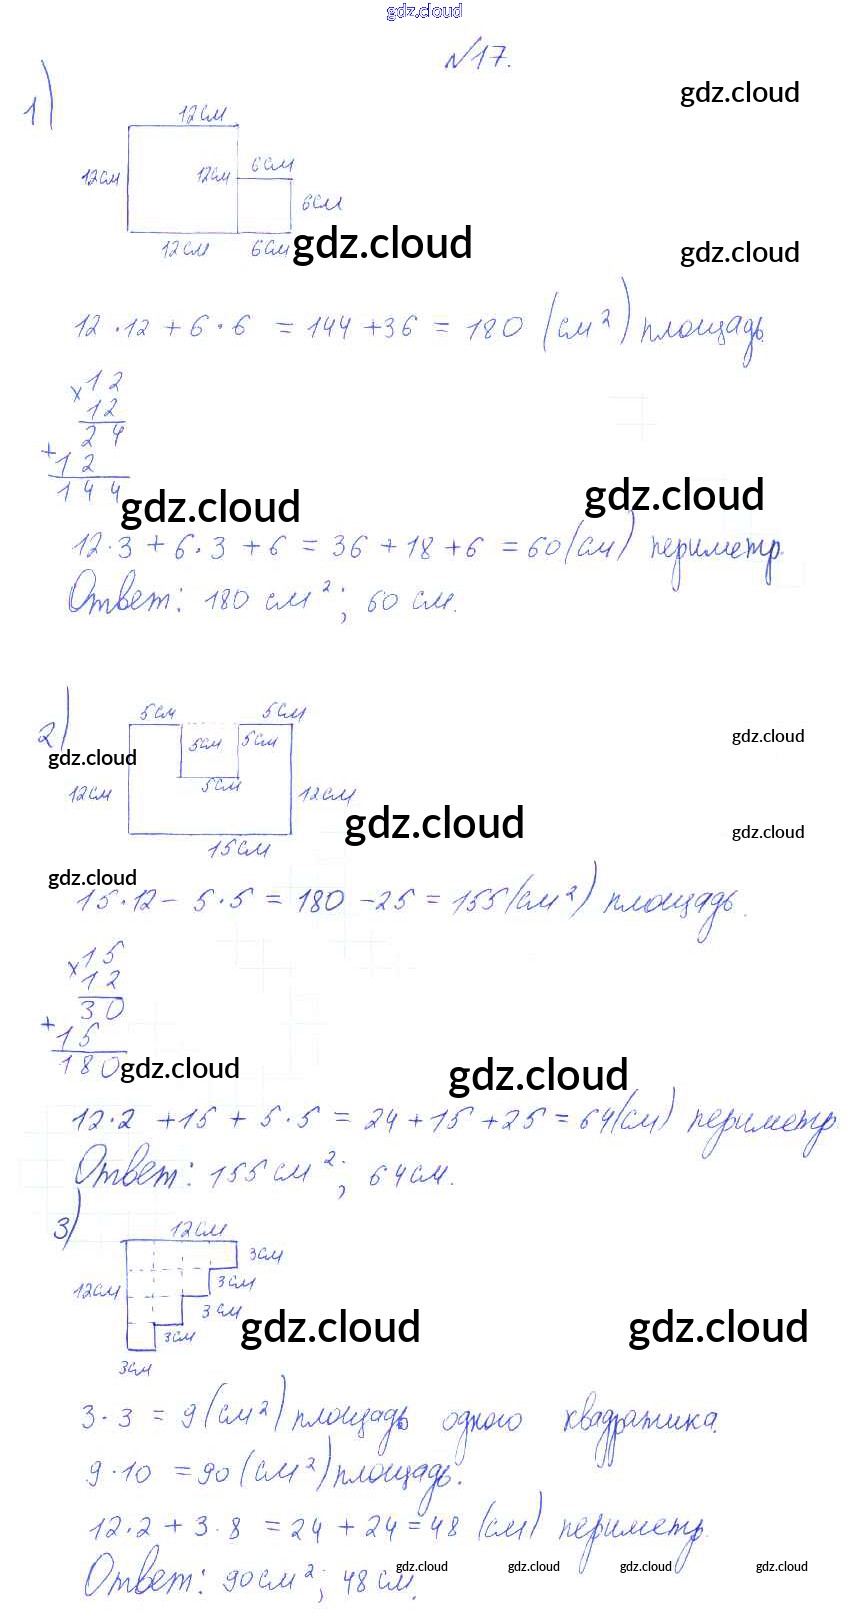 gdz.cloud
№17.
gdz.cloud
1)
12см
12см 12см 6см
6см
12см 6см gdz.cloud gdz.cloud
12·12+6·6=144+36=180 (см²) площадь.
×12
12
24
+12
144
gdz.cloud gdz.cloud
12·3+6·3+6=36+18+6=60(см) периметр.
Ответ: 180 см²; 60 см.
2)
5см 5см
gdz.cloud 5см 5см gdz.cloud
12см 5см 12см
gdz.cloud gdz.cloud
15см
gdz.cloud
15·12-5·5=180-25=155(см²) площадь.
×15
12
30
+15
180
gdz.cloud gdz.cloud
12·2+15+5·5=24+15+25=64(см) периметр
Ответ: 155см²; 64см.
3)
12см
3см
12см 3см
3см
3см gdz.cloud gdz.cloud
3см
3·3=9(см²) площадь одного квадратика.
9·10=90(см²) площадь.
12·2+3·8=24+24=48 (см) периметр.
Ответ: 90см²; 48см.
gdz.cloud gdz.cloud gdz.cloud gdz.cloud